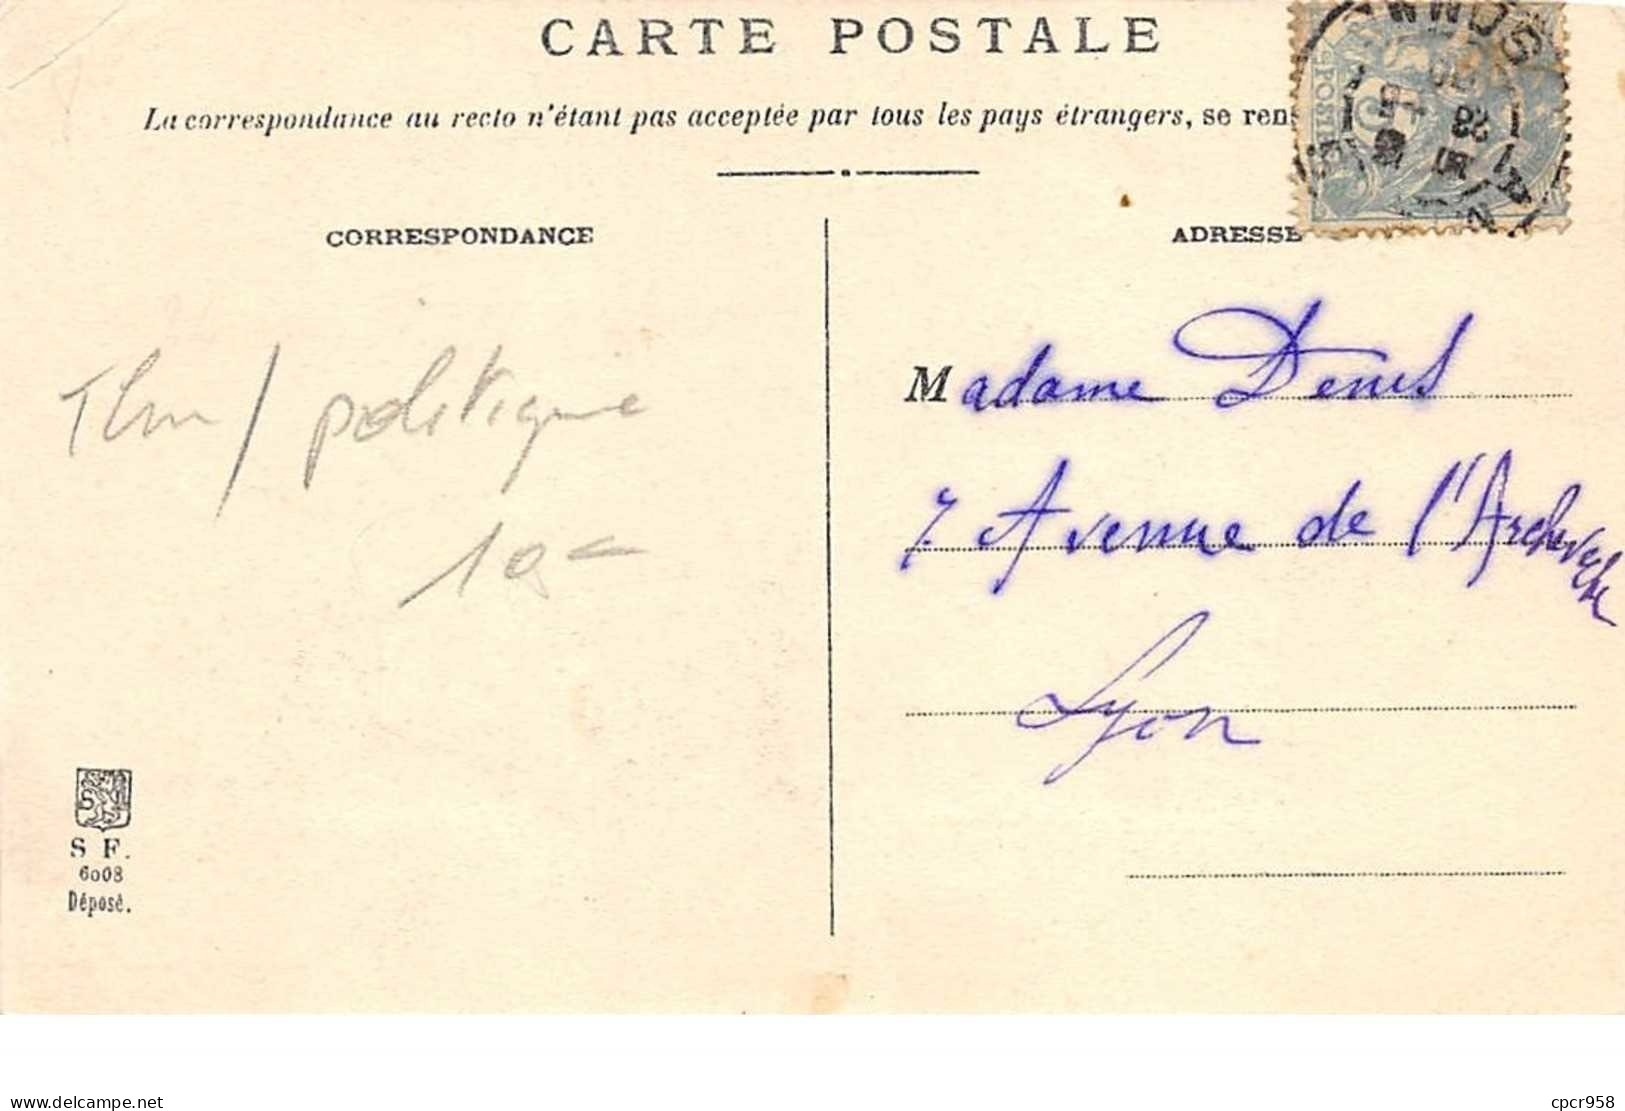 CARTE POSTALE
La correspondance au recto n'étant pas acceptée par tous les pays étrangers, se rens
CORRESPONDANCE
ADRESSE
Madame Denis
7. Avenue de l'Archevêché
Lyon
politique
10-
S F.
6008
Déposé.
POSTES
SOMM
delcampe.net
cpcr958